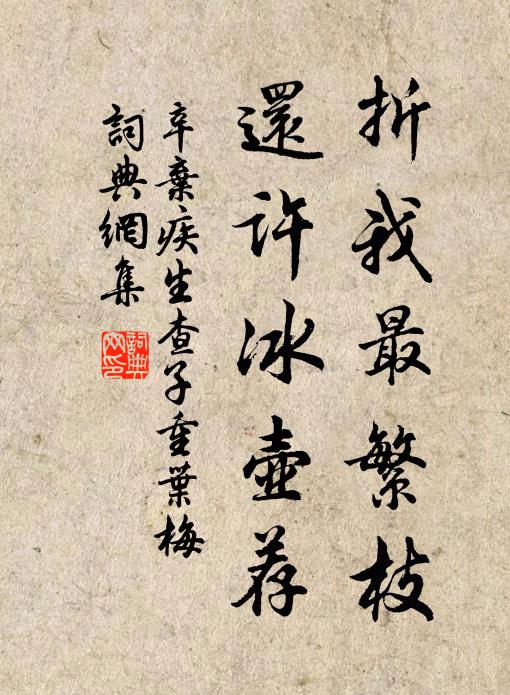 折我最繁枝
還許冰壺荐
辛棄疾生查子重葉梅
詞典網集
詞典網印